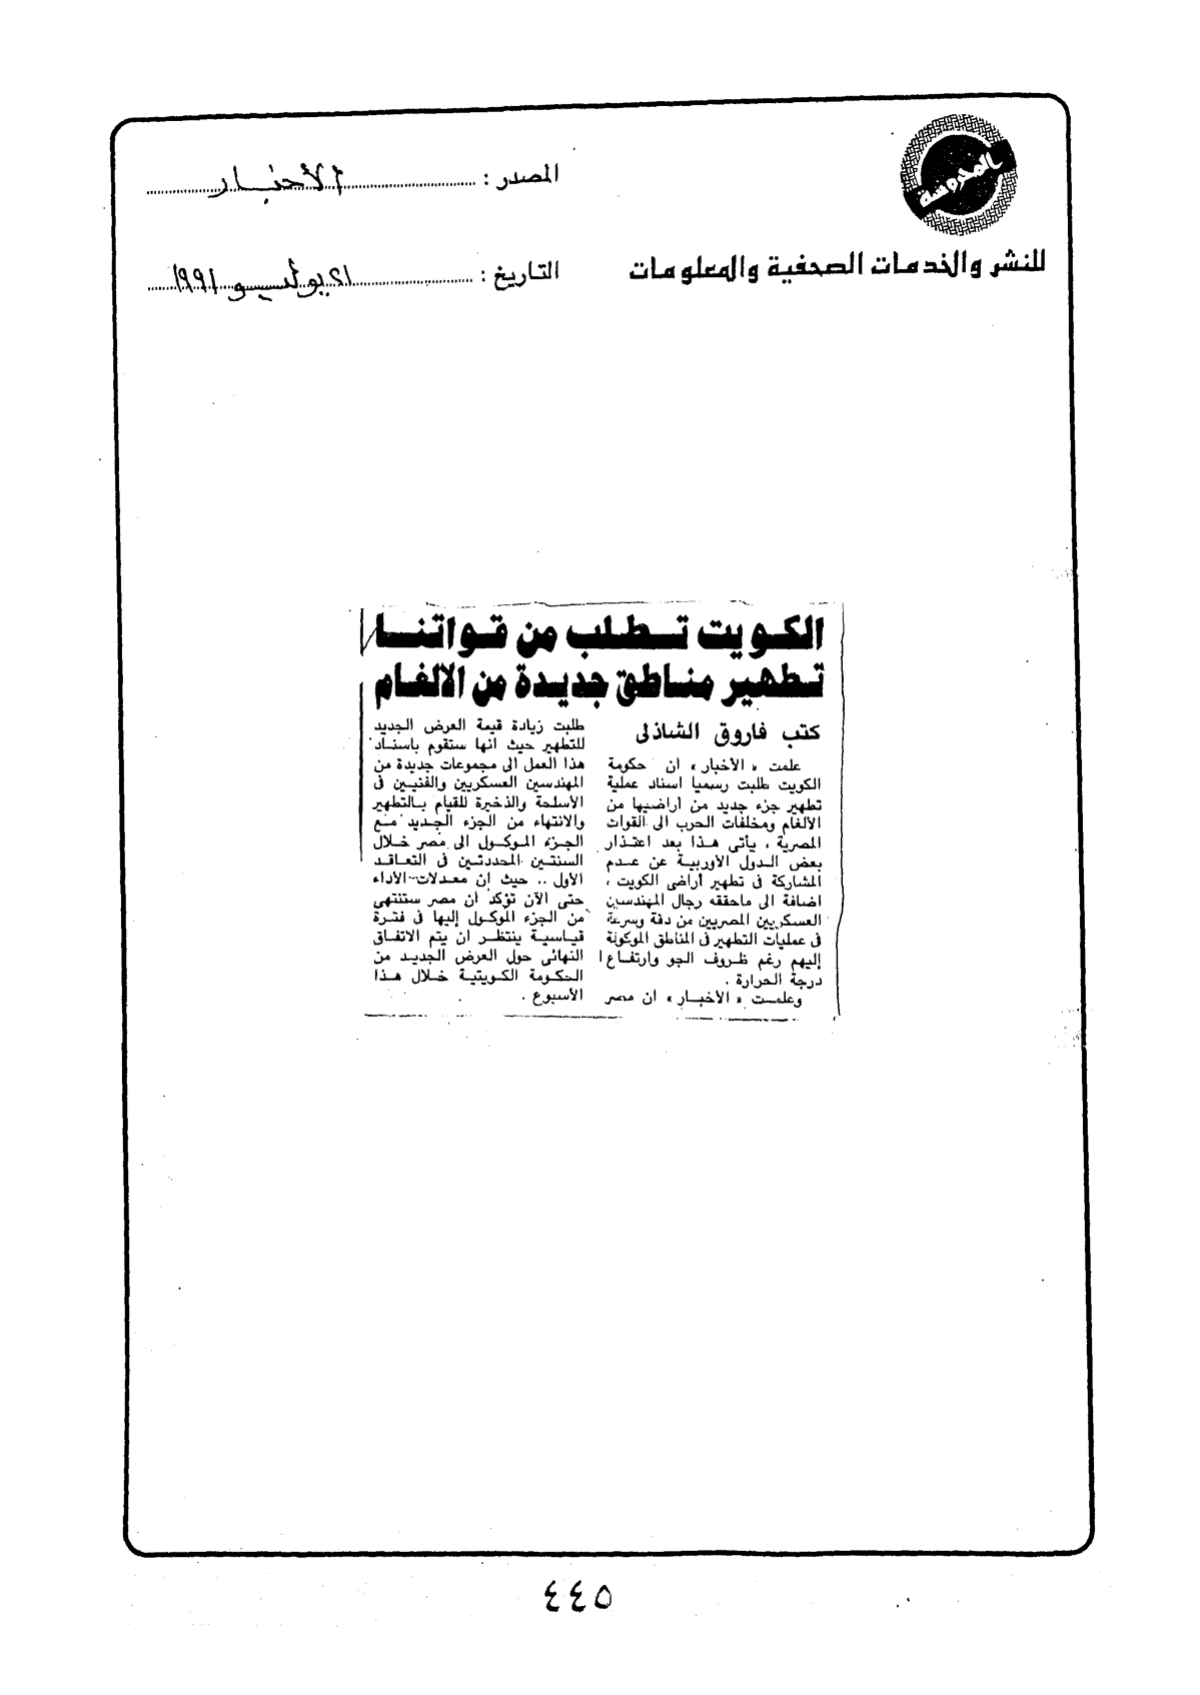 المحروسة
للنشر والخدمات الصحفية والمعلومات
المصدر : الأخبار
التاريخ : ٢١ يوليو ١٩٩١
الكويت تطلب من قواتنا
تطهير مناطق جديدة من الالغام
كتب فاروق الشاذلى
علمت « الأخبار » ان حكومة
الكويت طلبت رسميا اسناد عملية
تطهير جزء جديد من أراضيها من
الالغام ومخلفات الحرب الى القوات
المصرية ، يأتى هذا بعد اعتذار
بعض الدول الأوربية عن عدم
المشاركة فى تطهير أراضى الكويت ،
اضافة الى ماحققه رجال المهندسين
العسكريين المصريين من دقة وسرعة
فى عمليات التطهير فى المناطق الموكولة
إليهم رغم ظروف الجو وارتفاع
درجة الحرارة .
وعلمت « الأخبار » ان مصر
طلبت زيادة قيمة العرض الجديد
للتطهير حيث انها ستقوم باسناد
هذا العمل الى مجموعات جديدة من
المهندسين العسكريين والفنيين فى
الأسلحة والذخيرة للقيام بالتطهير
والانتهاء من الجزء الجديد مع
الجزء الموكول الى مصر خلال
السنتين المحددتين فى التعاقد
الأول .. حيث ان معدلات الأداء
حتى الآن تؤكد ان مصر ستنتهى
من الجزء الموكول إليها فى فترة
قياسية ينتظر ان يتم الاتفاق
النهائى حول العرض الجديد من
الحكومة الكويتية خلال هذا
الأسبوع .
٤٤٥